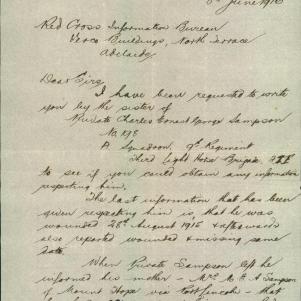 June 1916
Red Cross Information Bureau
Verco Buildings, North Terrace
Adelaide
Dear Sirs
I have been requested to write
you by the sister of
Private Charles Ernest George Sampson
No. 198
A Squadron, 9th Regiment
Third Light Horse Brigade AIF
to see if you could obtain any information
respecting him.
The last information that has been
given respecting him is, that he was
wounded 28th August 1915 & afterwards
also reported wounded & missing same
date.
When Private Sampson left he
informed his mother - Mrs M. E. A. Sampson
of Mount Hope via Port Lincoln - that